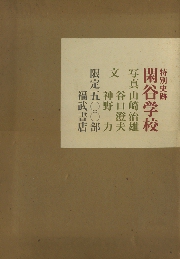 特別史跡
閑谷学校
写真 山崎治雄
文 谷口澄夫
神野力
限定五〇〇部
福武書店